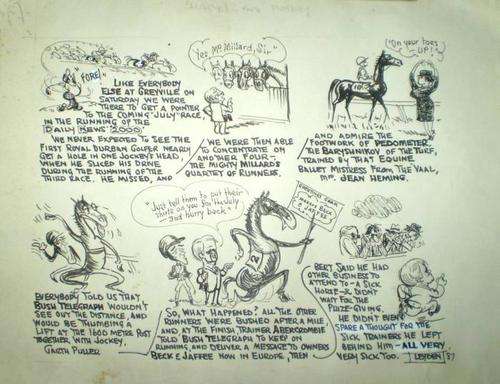 FORE!
LIKE EVERYBODY
ELSE AT GREYVILLE ON
SATURDAY WE WERE
THERE TO GET A POINTER
TO THE COMING "JULY" RACE,
IN THE RUNNING OF THE
DAILY NEWS 2000.
WE NEVER EXPECTED TO SEE THE
FIRST ROYAL DURBAN GOLFER NEARLY
GET A HOLE IN ONE JOCKEY'S HEAD,
WHEN HE SLICED HIS DRIVE
DURING THE RUNNING OF THE
THIRD RACE. HE MISSED, AND
Yes Mr. Millard, Sir,"
WE WERE THEN ABLE
TO CONCENTRATE ON
ANOTHER FOUR —
THE MIGHTY MILLARD
QUARTET OF RUNNERS,
"On your toes
- UP!"
AND ADMIRE THE
FOOTWORK OF PEDOMETER
THE BARYSHNIKOV OF THE TURF,
TRAINED BY THAT EQUINE
BALLET MISTRESS FROM THE VAAL,
JEAN HEMING.
EVERYBODY TOLD US THAT
BUSH TELEGRAPH WOULDN'T
SEE OUT THE DISTANCE, AND
WOULD BE THUMBING A
LIFT AT THE 1600 METRE POST
TOGETHER WITH JOCKEY,
GARTH PULLER
"Just tell them to put their
shirts on you for the July
- and hurry back"
SO, WHAT HAPPENED? ALL THE OTHER
RUNNERS WERE BUSHED AFTER A
MILE AND AT THE FINISH TRAINER ABERCROMBIE
TOLD BUSH TELEGRAPH TO KEEP ON
RUNNING, AND DELIVER A MESSAGE TO OWNERS
BECK & JAFFEE NOW IN EUROPE, THEN
BERT SAID HE HAD
OTHER BUSINESS TO
ATTEND TO - A SICK
HORSE - & DIDN'T
WAIT FOR THE
PRIZE-GIVING.
HE DIDN'T EVEN
SPARE A THOUGHT FOR THE
SICK TRAINERS HE LEFT
BEHIND — ALL VERY
VERY SICK TOO.
LEYDEN '87